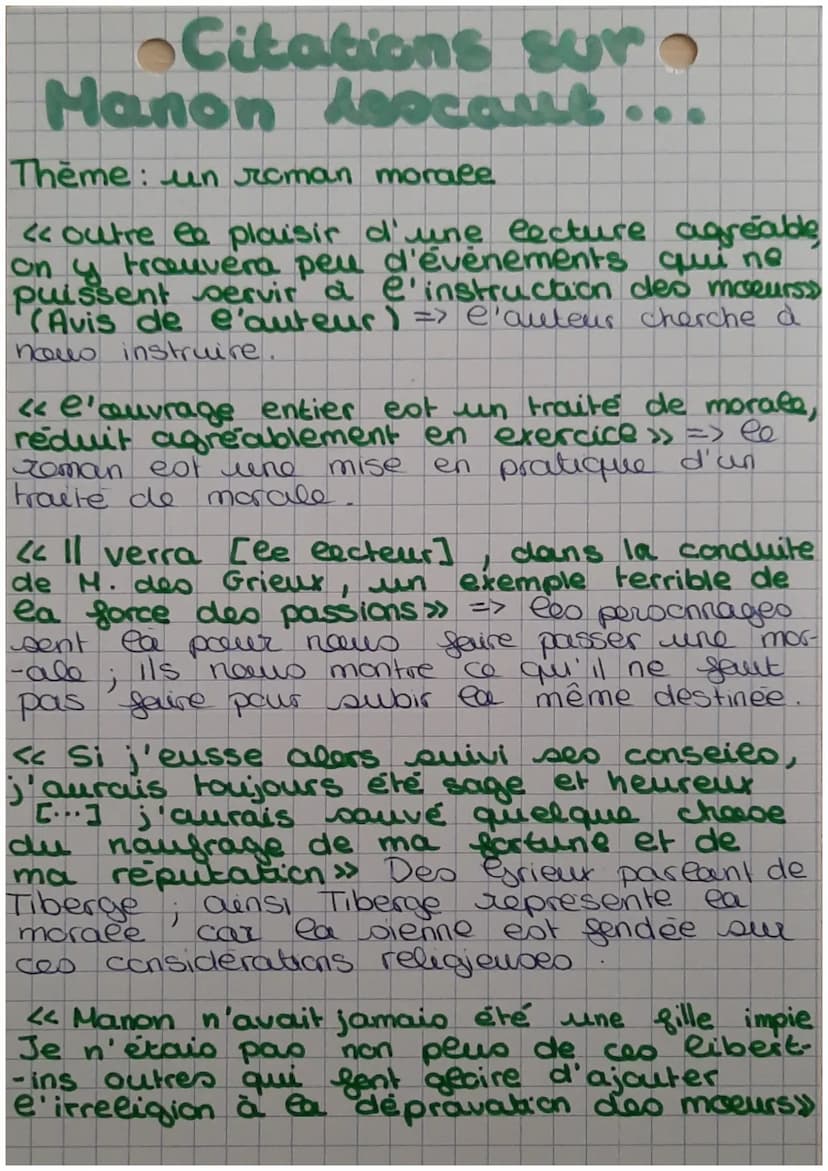 Citations sur
Manon Lescaut...
Thème : un roman morale
<< outre le plaisir d'une lecture agréable,
on y trouvera peu d'évènements qui ne
puissent servir à l'instruction des moeurs>>
(Avis de l'auteur) => l'auteur cherche à
nous instruire.
<< l'ouvrage entier est un traité de morale,
réduit agréablement en exercice >> => le
roman est une mise en pratique d'un
traité de morale.
<< Il verra [le lecteur] , dans la conduite
de M. des Grieux, un exemple terrible de
la force des passions>> => les personnages
sont là pour nous faire passer une mor-
-ale ; ils nous montre ce qu'il ne faut
pas faire pour subir la même destinée.
<< Si j'eusse alors suivi ses conseils,
j'aurais toujours été sage et heureux
[...] j'aurais sauvé quelque chose
du naufrage de ma fortune et de
ma réputation>> Des Grieux parlant de
Tiberge ; ainsi Tiberge représente la
morale car la sienne est fondée sur
ces considérations religieuses.
<< Manon n'avait jamais été une fille impie
Je n'étais pas non plus de ces libert-
-ins outres qui font gloire d'ajouter
l'irreligion à la dépravation des moeurs>>